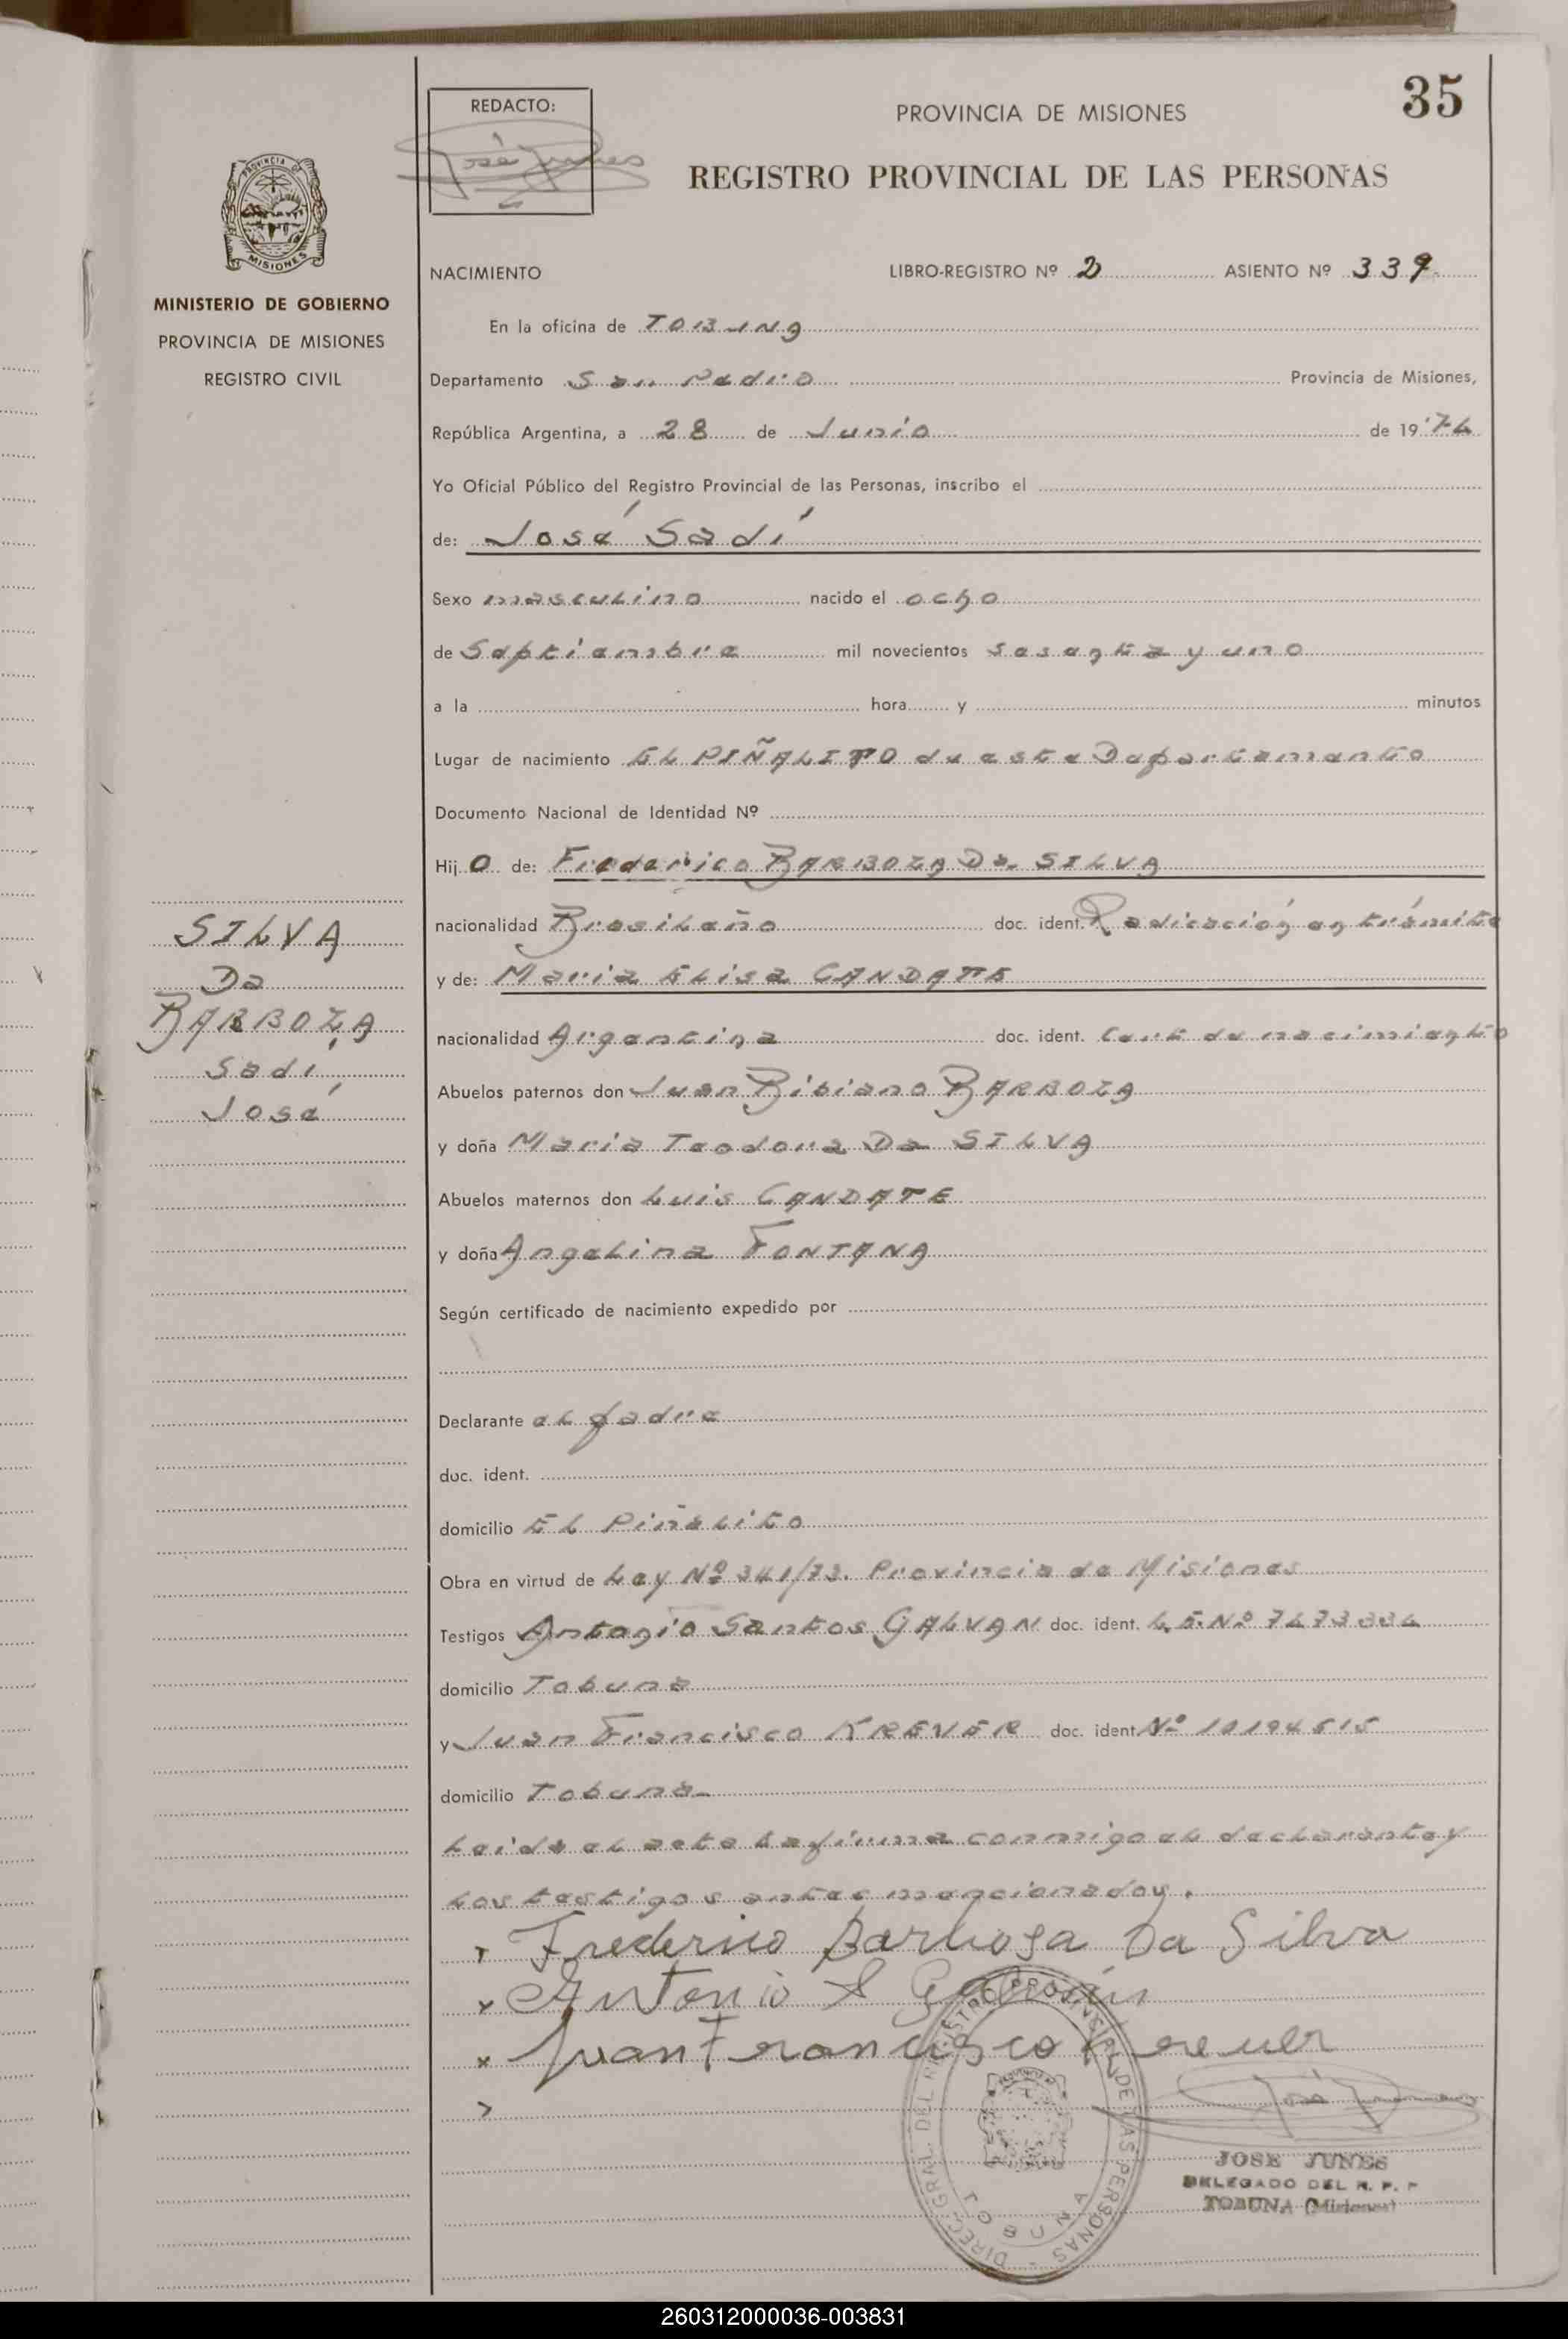 35
REDACTO:
José Junes
PROVINCIA DE MISIONES
REGISTRO PROVINCIAL DE LAS PERSONAS
PROVINCIA DE
MISIONES
MINISTERIO DE GOBIERNO
PROVINCIA DE MISIONES
REGISTRO CIVIL
NACIMIENTO LIBRO-REGISTRO Nº 2 ASIENTO Nº 339
En la oficina de TOBUNA
Departamento San Pedro Provincia de Misiones,
República Argentina, a 28 de Junio de 1974
Yo Oficial Público del Registro Provincial de las Personas, inscribo el
de: José Sadí
Sexo masculino nacido el ocho
de Septiembre mil novecientos sesenta y uno
a la hora y minutos
Lugar de nacimiento EL PIÑALITO de este Departamento
Documento Nacional de Identidad Nº
Hijo de: Frederico BARBOZA Da SILVA
nacionalidad Brasileño doc. ident. Radicación en trámite
y de: Maria Elisa CANDATE
nacionalidad Argentina doc. ident. Cert. de nacimiento
Abuelos paternos don Juan Bibiano BARBOZA
y doña Maria Teodora Da SILVA
Abuelos maternos don Luis CANDATE
y doña Angelina FONTANA
Según certificado de nacimiento expedido por
Declarante el padre
doc. ident.
domicilio El Piñalito
Obra en virtud de Ley Nº 341/73. Provincia de Misiones
Testigos Antonio Santos GALVAN doc. ident. L.E.Nº 7473334
domicilio Tobuna
y Juan Francisco KREVER doc. ident Nº 10194515
domicilio Tobuna
Leida el acta la firma conmigo el declarante y
los testigos antes mencionados.
x Frederico Barbosa Da Silva
x Antonio S Galván
x Juan Francisco Krever
SILVA
Da
BARBOZA
Sadí,
José
DIREC. GRAL. DEL REGISTRO PROVINCIAL DE LAS PERSONAS
TOBUNA
José Junes
JOSE JUNES
DELEGADO DEL R. P. P
TOBUNA (Misiones)
260312000036-003831